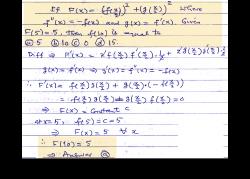 If F(x) = (f(x/2))² + (g(x/2))² where
f''(x) = -f(x) and g(x) = f'(x). Given
F(5) = 5, then f(10) is equal to
a) 5 b) 10 c) 0 d) 15.
Diff ⇒ F'(x) = 2f(x/2) f'(x/2)·1/2 + 2g(x/2) g'(x/2)
g(x) = f'(x) ⇒ g'(x) = f''(x) = -f(x)
∴ F'(x) = f(x/2) g(x/2) + g(x/2)·(-f(x/2))
= f(x/2) g(x/2) - g(x/2) f(x/2) = 0
⇒ F(x) = Constant C
at x=5, F(5) = C = 5
⇒ F(x) = 5 ∀ x
∴ F(10) = 5
⇒ Answer (a)